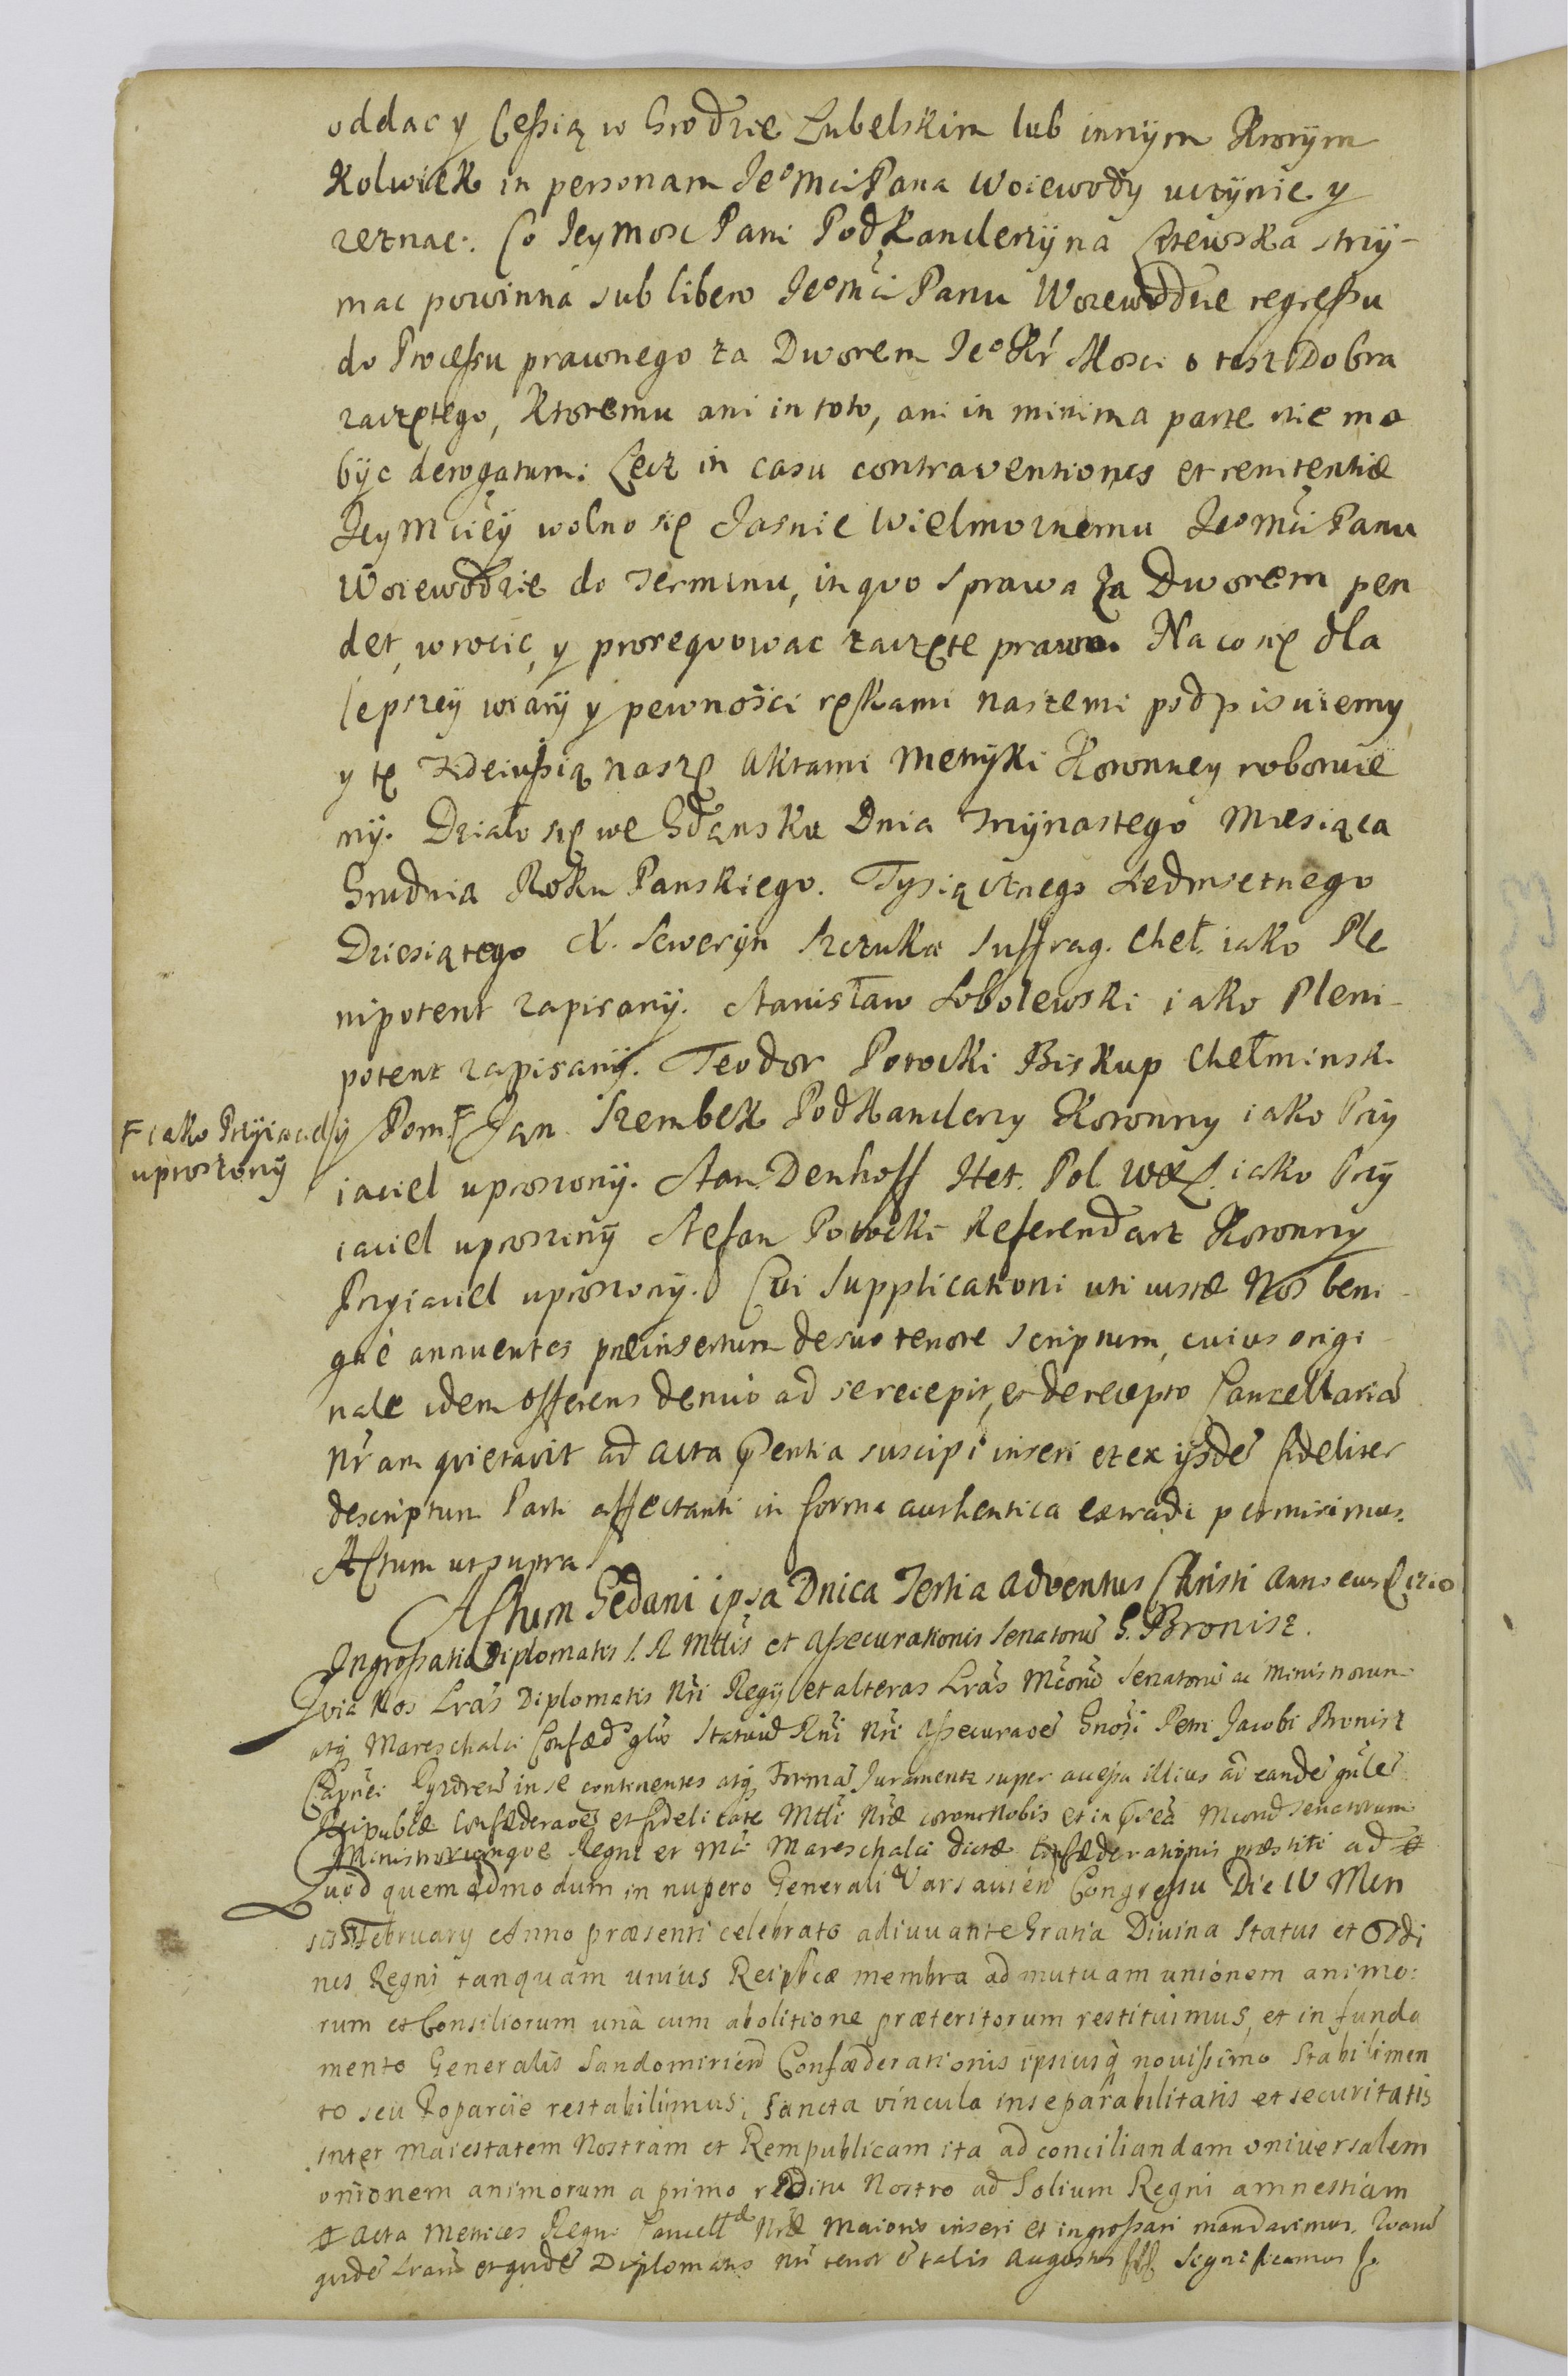 oddac y Cessią w Grodzie Lubelskim lub innym ktorym
kolwiek in personam Jeo Mci Pana Woiewody uczynic y
zeznac. Co Jeymosc Pani Podkanclerzyna Litewska strzy-
mac powinna sub libero Jeo Mci Panu Woiewodzie regressu
do Processu prawnego za Dworem Jeo Kr Mosci o tesz Dobra
zaczętego, ktoremu ani in toto, ani in minima parte nie ma
byc derogatum. Lecz in casu contraventionis et renitentiæ
Jey Mciey wolno się Jasnie Wielmoznemu Jeo Mci Panu
Woiewodzie do Terminu, in quo sprawa za Dworem pen
det, wrocic, y prosequowac zaczęte prawo. Na co się dla
lepszey wiary y pewnosci rękami naszemi podpisuiemy
y tę Fideiussią naszę aktami Metryki Koronney roboruie
my. Działo się we Gdansku Dnia Trzynastego Miesiąca
Grudnia Roku Panskiego. Tysiącznego Siedmsetnego
Dziesiątego X. Seweryn Szczuka Suffrag. Cheł. iako Ple
nipotent zapisany. Stanisław Sobolewski iako Pleni-
potent zapisany. Teodor Potocki Biskup Chełminsk.
F iako Przyiaciel uproszony
y Pom. F Jan Szembek Podkanclerzy Koronny iako Przy
iaciel uproszony. Stan. Denhoff Het. Pol W X L. iako Przy
iaciel uproszony Stefan Potocki Referendarz Koronny
Przyiaciel uproszony. Cui Supplicationi uti iustæ Nos beni
gne annuentes præinsertum de suo tenore scriptum, cuius origi
nale idem offerens denuo ad se recepit, et de recepto Cancellariā
Nram quietavit ad acta pñtia suscipi inseri et ex ijsdē fideliter
descriptum Parti affectanti in forma authentica extradi permisimus.
Actum ut supra
Actum Gedani ipsa Dnica Tertia Adventus Christi Anno eius 1710
Ingrossatio Diplomatis S. R. Mttis et Assecurationis Senatorū G. Bronisz.
Quia Nos Lrãs Diplomatis Nri Regij et alteras Lrãs Mcorū Senatorū ac Ministrorum
atq Mareschalci Confæd glis Statuū Rni Nri Assecuraoēs Gnosi Petri Jacobi Bronisz
Capnei Pyzdreñ in se continentes atq Formā Juramenti super accessu illius ad eandē gñlē
Reipublcæ Confæderaoēs et fidelitate Mtti Nræ coram Nobis et in psēa Mcorū senatorum
Ministrorumque Regni et Mci Mareschalci dictæ Confæderationis præstiti ad #
Quod quemadmodum in nupero Generali Varsavien Congressu Die IV Men
sis February Anno præsenti celebrato adiuvante Gratia Divina Status et Ordi
nes Regni tanquam unius Reipbcæ membra ad mutuam unionem animo:
rum et Consiliorum unà cum abolitione præteritorum restituimus, et in funda
mento Generalis Sandomirien Confæderationis ipsiusq novissimo Stabilimen
to seu Poparcie restabilimus; sancta vincula inseparabilitatis et securitatis
inter Maiestatem Nostram et Rempublicam ita ad conciliandam universalem
unionem animorum a primo reditu Nostro ad Solium Regni amnestiam
# Acta Metrices Regni Cancell Nræ Maioris inseri et ingrossari mandavimus. Quarū
quidē Lrarū et quidē Diplomatis Nri tenor ē talis Augustus Significamus